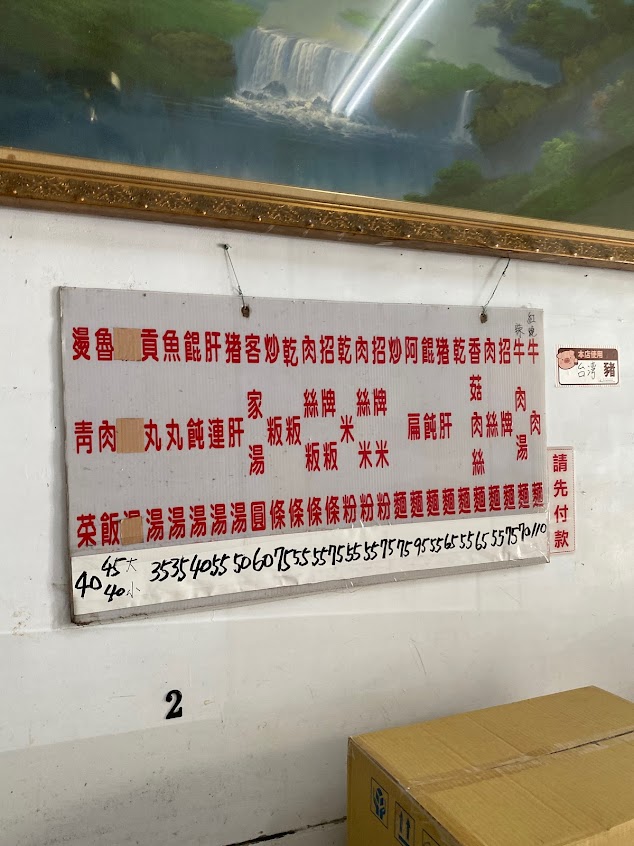 紅燒
牛肉麵 110
牛肉湯麵 70
招牌麵 75
肉絲麵 55
香菇肉絲麵 65
乾麵 55
猪肝麵 65
餛飩麵 55
阿扁麵 95
炒麵 75
招牌米粉 75
肉絲米粉 55
乾米粉 55
招牌粄條 75
肉絲粄條 55
乾粄條 55
炒粄條 75
客家湯圓 60
猪肝湯 50
肝連湯 55
餛飩湯 40
魚丸湯 35
貢丸湯 35
湯
魯肉飯 45大 40小
燙青菜 40
本店使用
台灣 豬
請先付款
2